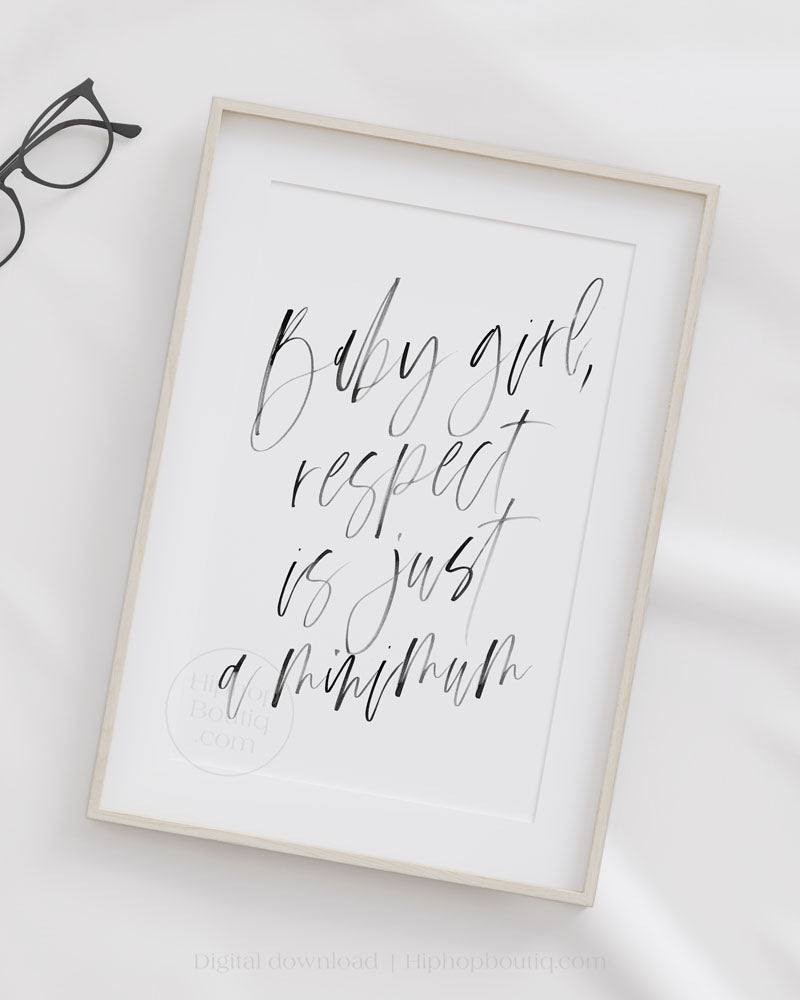 Baby girl,
respect
is just
a minimum
Hiphop
Boutiq
.com
Digital download | Hiphopboutiq.com